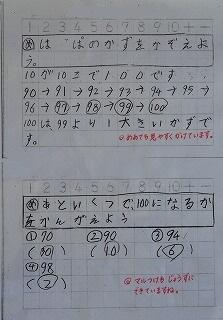 1 2 3 4 5 6 7 8 9 10 +
め は゛ぱのかずをかぞえよ
う。
10が10こで100です
90→91→92→93→94→95→
96→97→98→99→100
100は、99より1大きいかずで
す。
◎めあても見やすくかけています。
1 2 3 4 5 6 7 8 9 10 +
め あといくつで、100になるか
をかんがえよう
① 70 ② 90 ③ 94
(30) (10) (6)
④ 98
(2)
◎マルつけもじょうずに
できていますね。